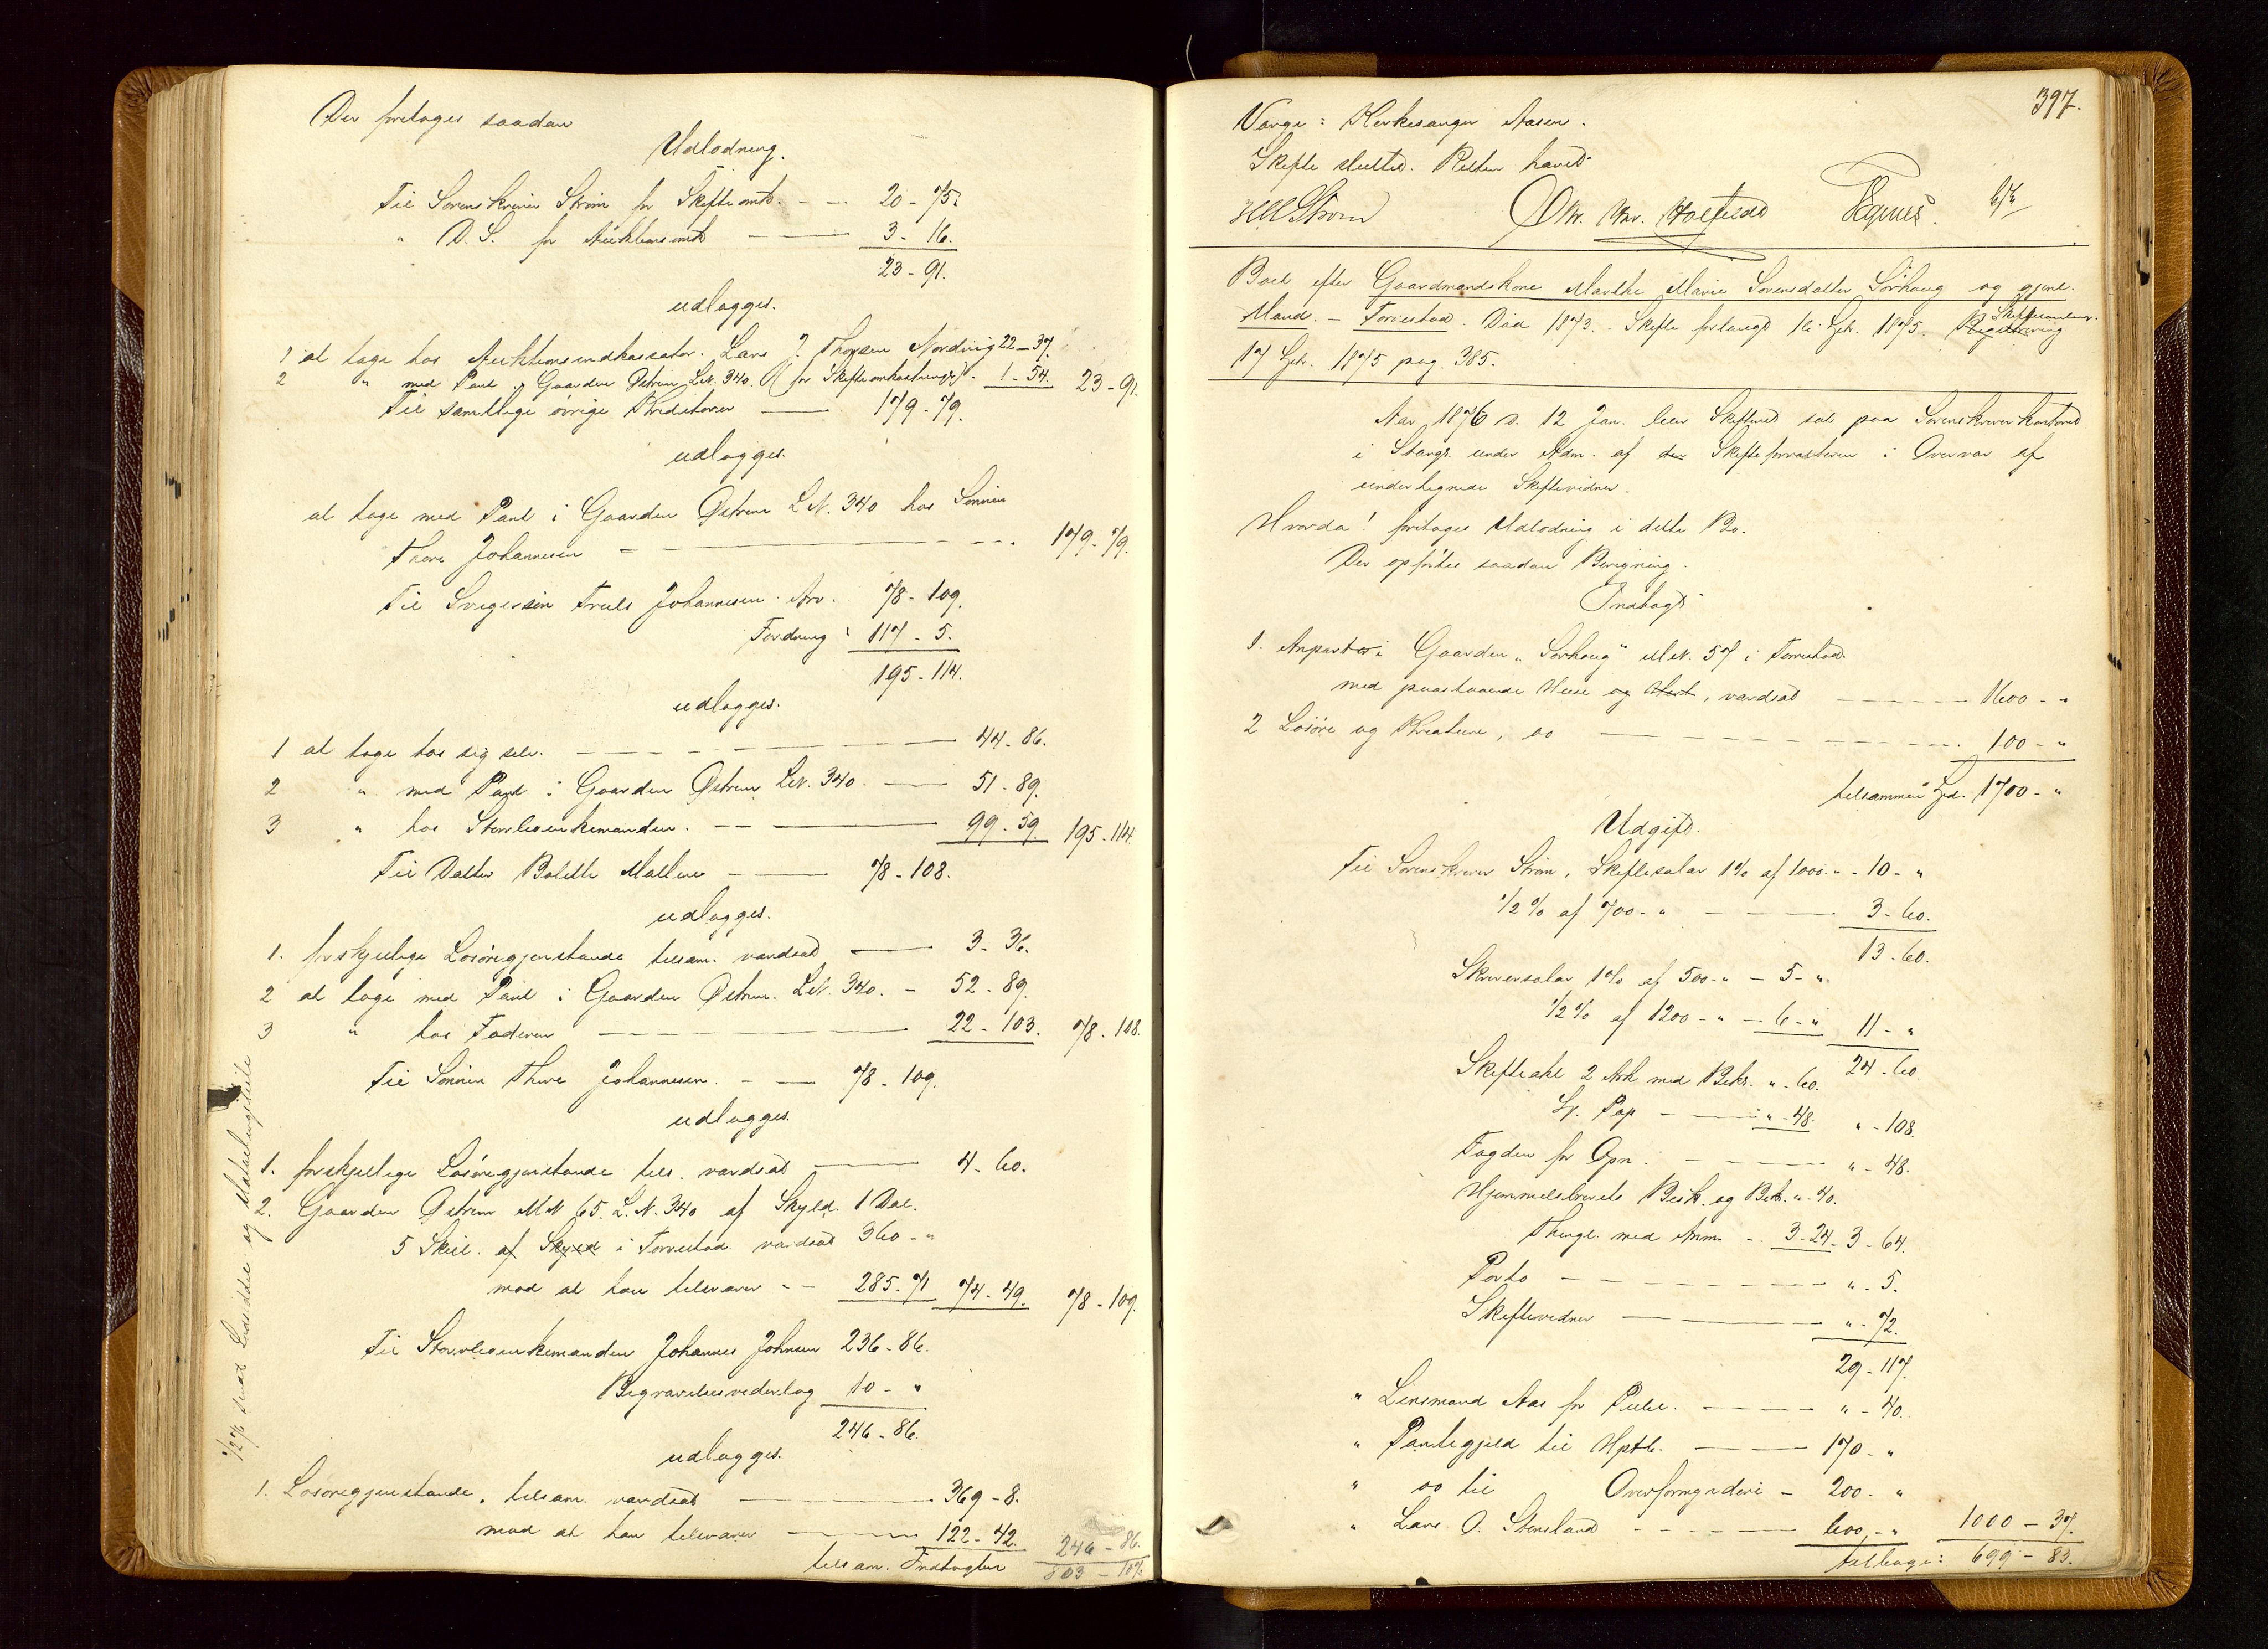 Der foretages saadan
Udlodning.
Til Sorenskriver Strøm for Skifteomk. - - 20 - 75.
" D. S. for Auktionsomk - 3 - 16.
23 - 91.
udlægges.
1 at tage hos Auktionsindkassator Lars T. Thorsen Nordvig 22 - 37.
2 " med Pant i Gaarden Østrem L.N. 340 (for Skifteomkostninger) - 1 - 54. 23 - 91.
Til samtlige øvrige Kreditorer - 179 - 79.
udlægges.
at tage med Pant i Gaarden Østrem L.N. 340 hos Sønnen
Thore Johannesen - 179 - 79.
Til Svigersøn Truls Johannesen Arv. 78 - 109.
Fordring : 117 - 5.
195 - 114.
udlægges.
1 at tage hos sig selv. - 44 - 86.
2 " med Pant i Gaarden Østrem L.N. 340. - 51 - 89.
3 " hos Stervboenkemanden. - 99 - 59. 195 - 114.
Til Datter Bolette Malene - 78 - 108.
udlægges.
1. forskjellige Løsøregjenstande tilsam. værdsat - 3 - 36.
2 at tage med Pant i Gaarden Østrem. L.N. 340. - 52 - 89.
3 " hos Faderen - 22 - 103. 78 - 108.
Til Sønnen Thore Johannesen. - 78 - 109.
udlægges.
1. forskjellige Løsøregjenstande tils. værdsat - 4 - 60.
2. Gaarden Østrem M.N. 65. L.N. 340 af Skyld. 1 Dal.
5 Skill. af Skyld i Torvestad værdsat 360 - "
mod at han tilsvarer - - 285 - 71 74 - 49. 78 - 109.
Til Stervboenkemanden Johannes Johnsen 236 - 86.
Begravelsesvederlag 10 - "
246 - 86.
udlægges.
1. Løsøregjenstande, tilsam. værdsat - 369 - 8.
mod at han tilsvarer - 122 - 42. 246 - 86.
tilsam. Indtægten 803 - 107
397.
Værge : Kirkesanger Aasen.
Skifte sluttet. Retten hævet
HM Strøm
Boet efter Gaardmandskone Marthe Marie Sørensdatter Sørhaug og gjenl.
Mand. - Torvestad. Død 1873. Skifte forlangt 16 Septr. 1875. Registrering
17 Septr. 1875 pag. 385.
Aar 1876 d. 12 Jan. blev Skifteret sat paa Sorenskriverkontoret
i Stangs. under Adm. af den Skifteforvalteren i Overvær af
undertegnede Skiftevidner.
Hvorda! foretages Udlodning i dette Bo.
Der opførtes saadan Beregning.
Indtægt
1. Anparter i Gaarden "Sørhaug" M.N. 57 i Torvestad
med paastaaende Huse og , værdsat - 1600 - "
2 Løsøre og Kreature, do - 100 - "
tilsammen Spd. 1700 - "
Udgift.
Til Sorenskriver Strøm, Skiftesalær 1% af 1000 - " - 10 - "
1/2% af 700 - " - 3 - 60.
13 - 60.
Skriversalær 1% af 500 - " - 5 - "
1/2% af 1200 - " - 6 - " 11 - "
24 - 60.
Skifteakt 2 Ark med Bekr. " - 60.
St. Pap - " - 48. " - 108.
Fogden for Opn. - " - 48.
Hjemmelsbrevets Besk. og Bekr. " - 40.
Thingl. med Anm. - 3 - 24 - 3 - 64.
Porto - " - 5.
Skiftevidner - " - 72.
29 - 117.
" Lensmand Aas for Publ. - " - 40.
" Pantegjæld til Hptb. - 170 - "
" do til Overformynderi - 200 - "
" Lars O. Stensland - 600 - " 1000 - 37.
tilbage : 699 - 83.